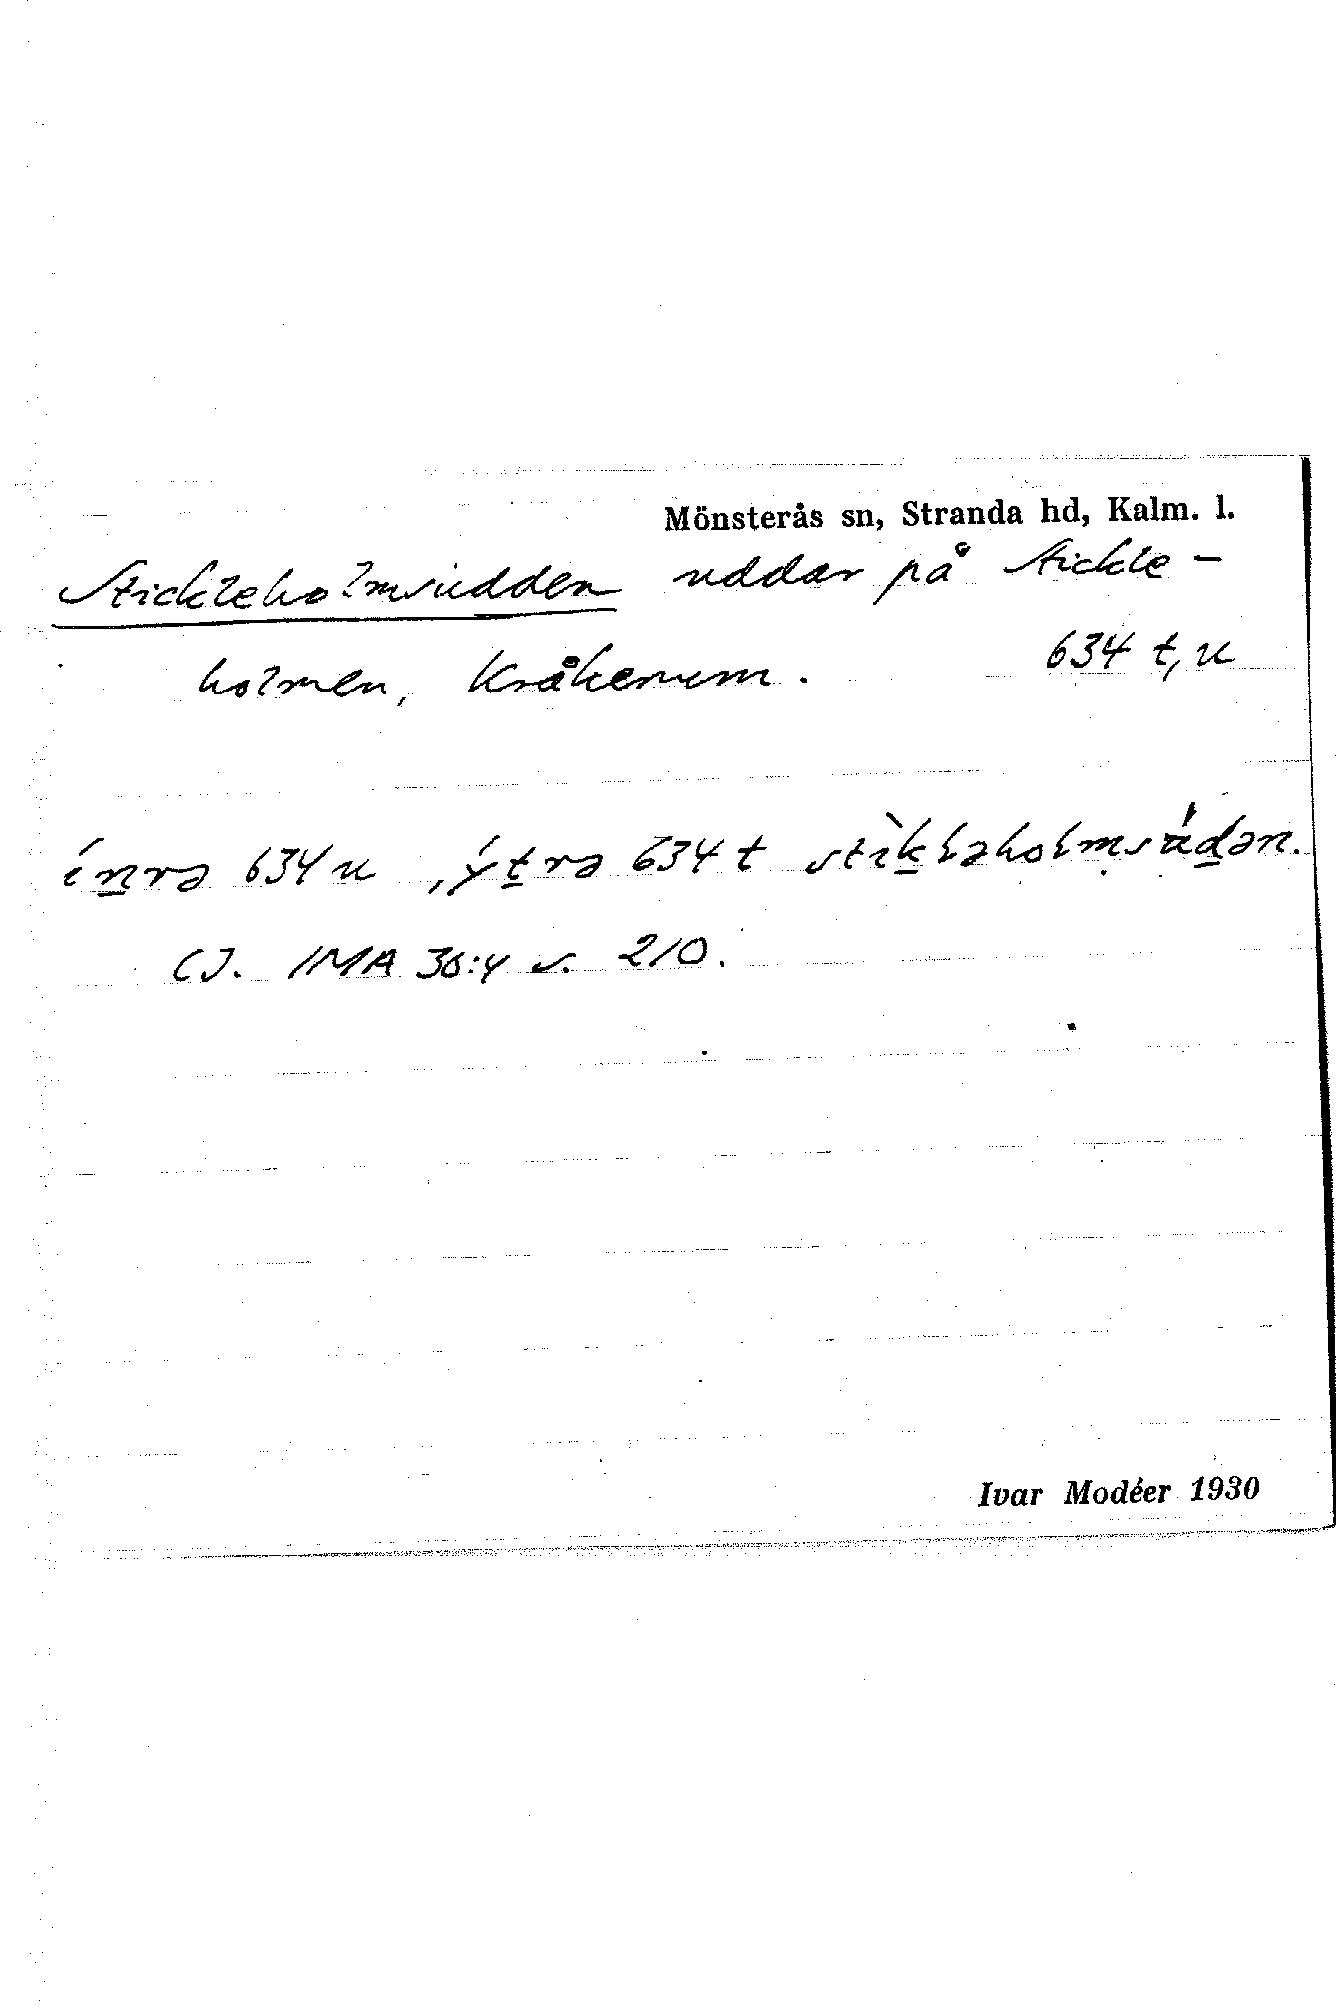 Mönsterås sn, Stranda hd, Kalm. l.
Stickleholmsudden uddar på Stickle-
holmen, Kråkerum. 634 t, u
ínrə 634 u, ýtrə 634 t stìkləholmsúdən.
CJ. IMA 36:4 s. 210.
Ivar Modéer 1930